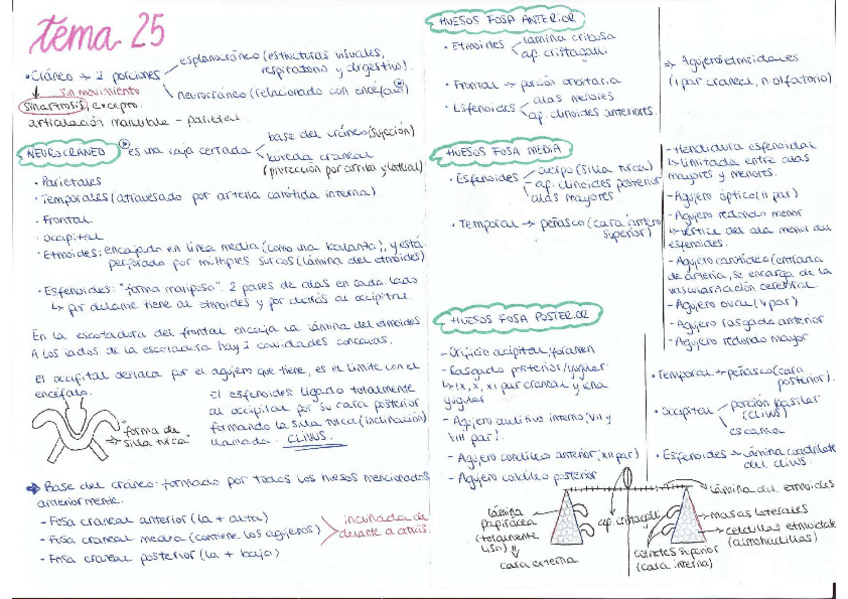 tema 25
• Cráneo → 2 porciones
esplanocráneo (estructuras visuales, respiratorio y digestivo).
neurocráneo (relacionado con encéfalo)
sin movimiento
sinartrosis, excepto
articulación mandíbula - parietal
NEUROCRÁNEO
es una caja cerrada
base del cráneo (sujeción)
bóveda craneal
(protección por arriba y lateral)
• Parietales
• Temporales (atravesado por arteria carótida interna)
• Frontal
• Occipital
• Etmoides: encajado en línea media (como una balanza), y está
perforado por múltiples surcos (lámina del etmoides)
• Esfenoides: "forma mariposa". 2 pares de alas en cada lado
↳ por delante tiene al etmoides y por detrás al occipital.
En la escotadura del frontal encaja la lámina del etmoides
A los lados de la escotadura hay 2 cavidades concavas.
El occipital destaca por el agujero que tiene, es el límite con el
encéfalo.
El esfenoides: ligado totalmente
al occipital por su cara posterior
formando la silla turca (inclinación)
llamada CLIVUS.
"forma de
silla turca"
Base del cráneo: formado por todos los huesos mencionados
anteriormente.
- Fosa craneal anterior (la + alta)
- Fosa craneal media (contiene los agujeros)
- Fosa craneal posterior (la + baja)
inclinada de
delante a atrás.
HUESOS FOSA ANTERIOR
• Etmoides
lámina cribosa
ap. cristagalli
• Frontal → porción orbitaria
• Esfenoides
alas menores
ap. clinoides anteriores.
→ Agujeros etmoidales
(I par craneal, n. olfatorio)
HUESOS FOSA MEDIA
• Esfenoides
cuerpo (silla turca)
ap. clinoides posterior
alas mayores
• Temporal → peñasco (cara antero
superior)
- Hendidura esfenoidal
↳ limitada entre alas
mayores y menores.
- Agujero óptico (II par)
- Agujero redondo menor
↳ vértice del ala menor del
esfenoides.
- Agujero carotídeo (entrada
de arteria, se encarga de la
vascularización cerebral.
- Agujero oval (V par)
- Agujero rasgado anterior
- Agujero redondo mayor
HUESOS FOSA POSTERIOR
- Orificio occipital, foramen
- Rasgado posterior/yugular
↳ IX, X, XI par craneal y vena
yugular
- Agujero auditivo interno (VII y
VIII par).
- Agujero condíleo anterior (XII par)
- Agujero condíleo posterior
• Temporal → peñasco (cara
posterior).
• Occipital
porción basilar
(clivus)
escama
• Esfenoides → lámina cuadrilate
del clivus.
lámina
papirácea
(totalmente
lisa)
cara externa
ap. cristagalli
lámina del etmoides
masas laterales
celdillas etmoidale
(almohadillas)
cornetes superior
(cara interna)